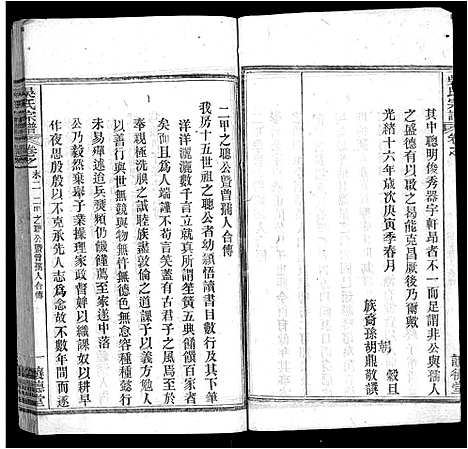 其中聰明俊秀器宇軒昂者不一而足謂非公與孺人
之盛德有以啟之曷能克昌厥後乃爾哉
光緒十六年歲次庚寅季春月 朝 穀旦
族裔孫胡鼎敬譔
吳氏宗譜 卷之 末一 二甲之聰公暨曾孺人合傳 一
二甲之聰公暨曾孺人合傳
我房十五世祖之聰公者幼穎悟讀書目數行及其下筆
洋洋灑灑數千言立就真所謂笙簧五典鐘鼓百家者
矣而且其為人端謹不苟言笑蓋有古君子之風焉至於
極桑梓洗腆之誠睦族盡敦倫之道課子以義方勉人
以善行與世無競與物無忤無德色無怠容種種懿行
未易殫述迨兵燹頻仍饑饉薦至家遂中落
公毅然棄舉子業操理家政督婢以織課奴以耕早
作夜思殷殷以不克承先人志為念故不數年間而